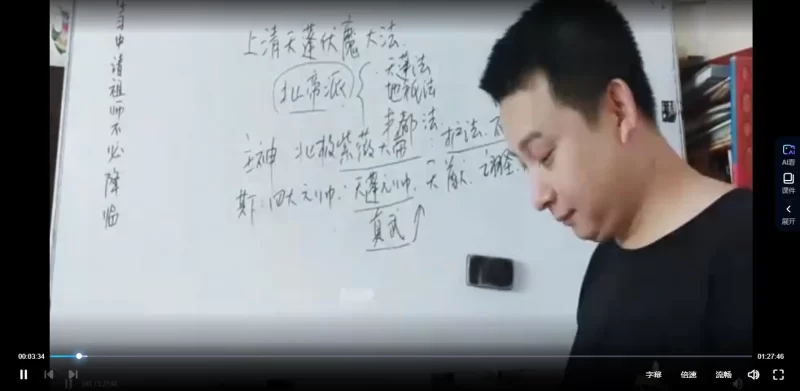 学习中请祖师不必降临
上清天蓬伏魔大法
北帝派
天蓬法
地祇法
酆都法
主神 北极紫薇大帝:护法.
四大元帅:天蓬元帅.天猷.翊圣.
真武
AI看
课件
展开
00:03:34
01:27:46
字幕
倍速
流畅